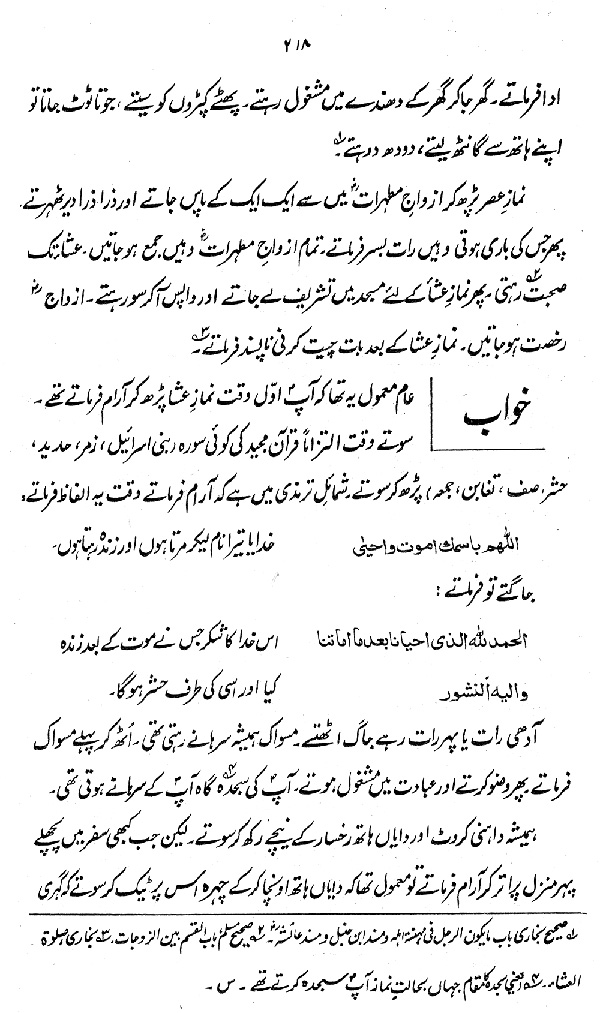 ۲۱۸
ادا فرماتے۔ گھر جا کر گھر کے دھندے میں مشغول رہتے۔ پھٹے کپڑوں کو سیتے، جوتا ٹوٹ جاتا تو
اپنے ہاتھ سے گانٹھ لیتے، دودھ دوہتے۔؎۱
نماز عصر پڑھ کر ازواجِ مطہراتؓ میں سے ایک ایک کے پاس جاتے اور ذرا ذرا دیر ٹھہرتے
پھر جس کی باری ہوتی وہیں رات بسر فرماتے۔ تمام ازواجِ مطہراتؓ وہیں جمع ہو جاتیں۔ عشا تک
صحبت؎۲ رہتی۔ پھر نماز عشاٴ کے لئے مسجد میں تشریف لے جاتے اور واپس آ کر سو رہتے۔ ازواجؓ
رخصت ہو جاتیں۔ نماز عشا کے بعد بات چیت کرنی ناپسند فرماتے۔؎۳
خواب
عام معمول یہ تھا کہ آپؐ اوّل وقت نماز عشا پڑھ کر آرام فرماتے تھے۔
سوتے وقت التزاماً قرآن مجید کی کوئی سورہ (بنی اسرائیل، زمر، حدید،
حشر، صف، تغابن، جمعہ) پڑھ کر سوتے۔ شمائل ترمذی میں ہے کہ آرام فرماتے وقت یہ الفاظ فرماتے:
اللهم باسمك اموت واحيیٰ خدایا تیرا نام لیکر مرتا ہوں اور زندہ رہتا ہوں۔
جاگتے تو فرماتے:
الحمد لله الذى احيانا بعد ما اماتنا اس خدا کا شکر جس نے موت کے بعد زندہ
واليه النشور کیا اور اسی کی طرف حشر ہو گا۔
آدھی رات یا پہر رات رہے جاگ اٹھتے۔ مسواک ہمیشہ سرہانے رہتی تھی۔ اُٹھ کر پہلے مسواک
فرماتے پھر وضو کرتے اور عبادت میں مشغول ہوتے۔ آپؐ کی سجدہ؎۴ گاہ آپؐ کے سرہانے ہوتی تھی۔
ہمیشہ داہنی کروٹ اور دایاں ہاتھ رخسار کے نیچے رکھ کر سوتے۔ لیکن جب کبھی سفر میں پچھلے
پہر منزل پر اتر کر آرام فرماتے تو معمول تھا کہ دایاں ہاتھ اونچا کر کے چہرہ اس پر ٹیک کر سوتے کہ گہری
؎۱ صحیح بخاری باب ما یکون الرجل فی مہنۃ اہلہ و مسند ابن حنبل و مسند عائشہؓ۔ ؎۲ صحیح مسلم باب القسم بین الزوجات۔ ؎۳ بخاری صلوٰۃ
العشاء۔ ؎۴ یعنی سجدہ کا مقام جہاں بحالتِ نماز آپؐ سجدہ کرتے تھے۔ س۔